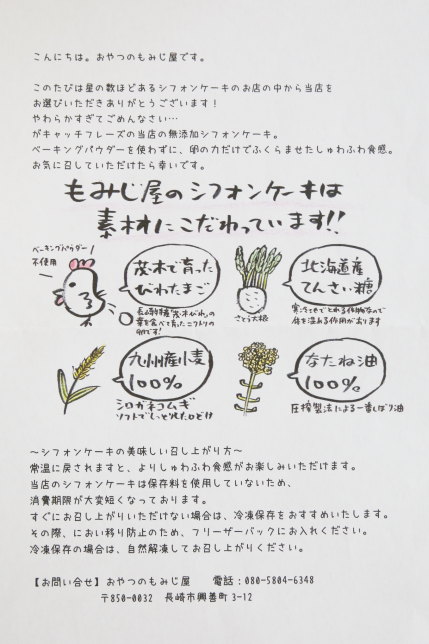 こんにちは。おやつのもみじ屋です。
このたびは星の数ほどあるシフォンケーキのお店の中から当店を
お選びいただきありがとうございます！
やわらかすぎてごめんなさい…
がキャッチフレーズの当店の無添加シフォンケーキ。
ベーキングパウダーを使わずに、卵の力だけでふくらませたしゅわふわ食感。
お気に召していただけたら幸いです。
もみじ屋のシフォンケーキは
素材にこだわっています!!
ベーキングパウダー
不使用
茂木で育った
びわたまご
長崎特産“茂木びわ”の
葉を食べて育ったニワトリの
卵です!
さとう大根
北海道産
てんさい糖
寒さでとれる作物なので
体を温める作用があります
九州産小麦
100%
シロガネコムギ
ソフトでしっとりした口どけ
なたね油
100%
圧搾製法による一番しぼり油
〜シフォンケーキの美味しい召し上がり方〜
常温に戻されますと、よりしゅわふわ食感がお楽しみいただけます。
当店のシフォンケーキは保存料を使用していないため、
消費期限が大変短くなっております。
すぐにお召し上がりいただけない場合は、冷凍保存をおすすめいたします。
その際、におい移り防止のため、フリーザーバックにお入れください。
冷凍保存の場合は、自然解凍してお召し上がりください。
【お問い合せ】おやつのもみじ屋 電話：080-5804-6348
〒850-0032 長崎市興善町3-12